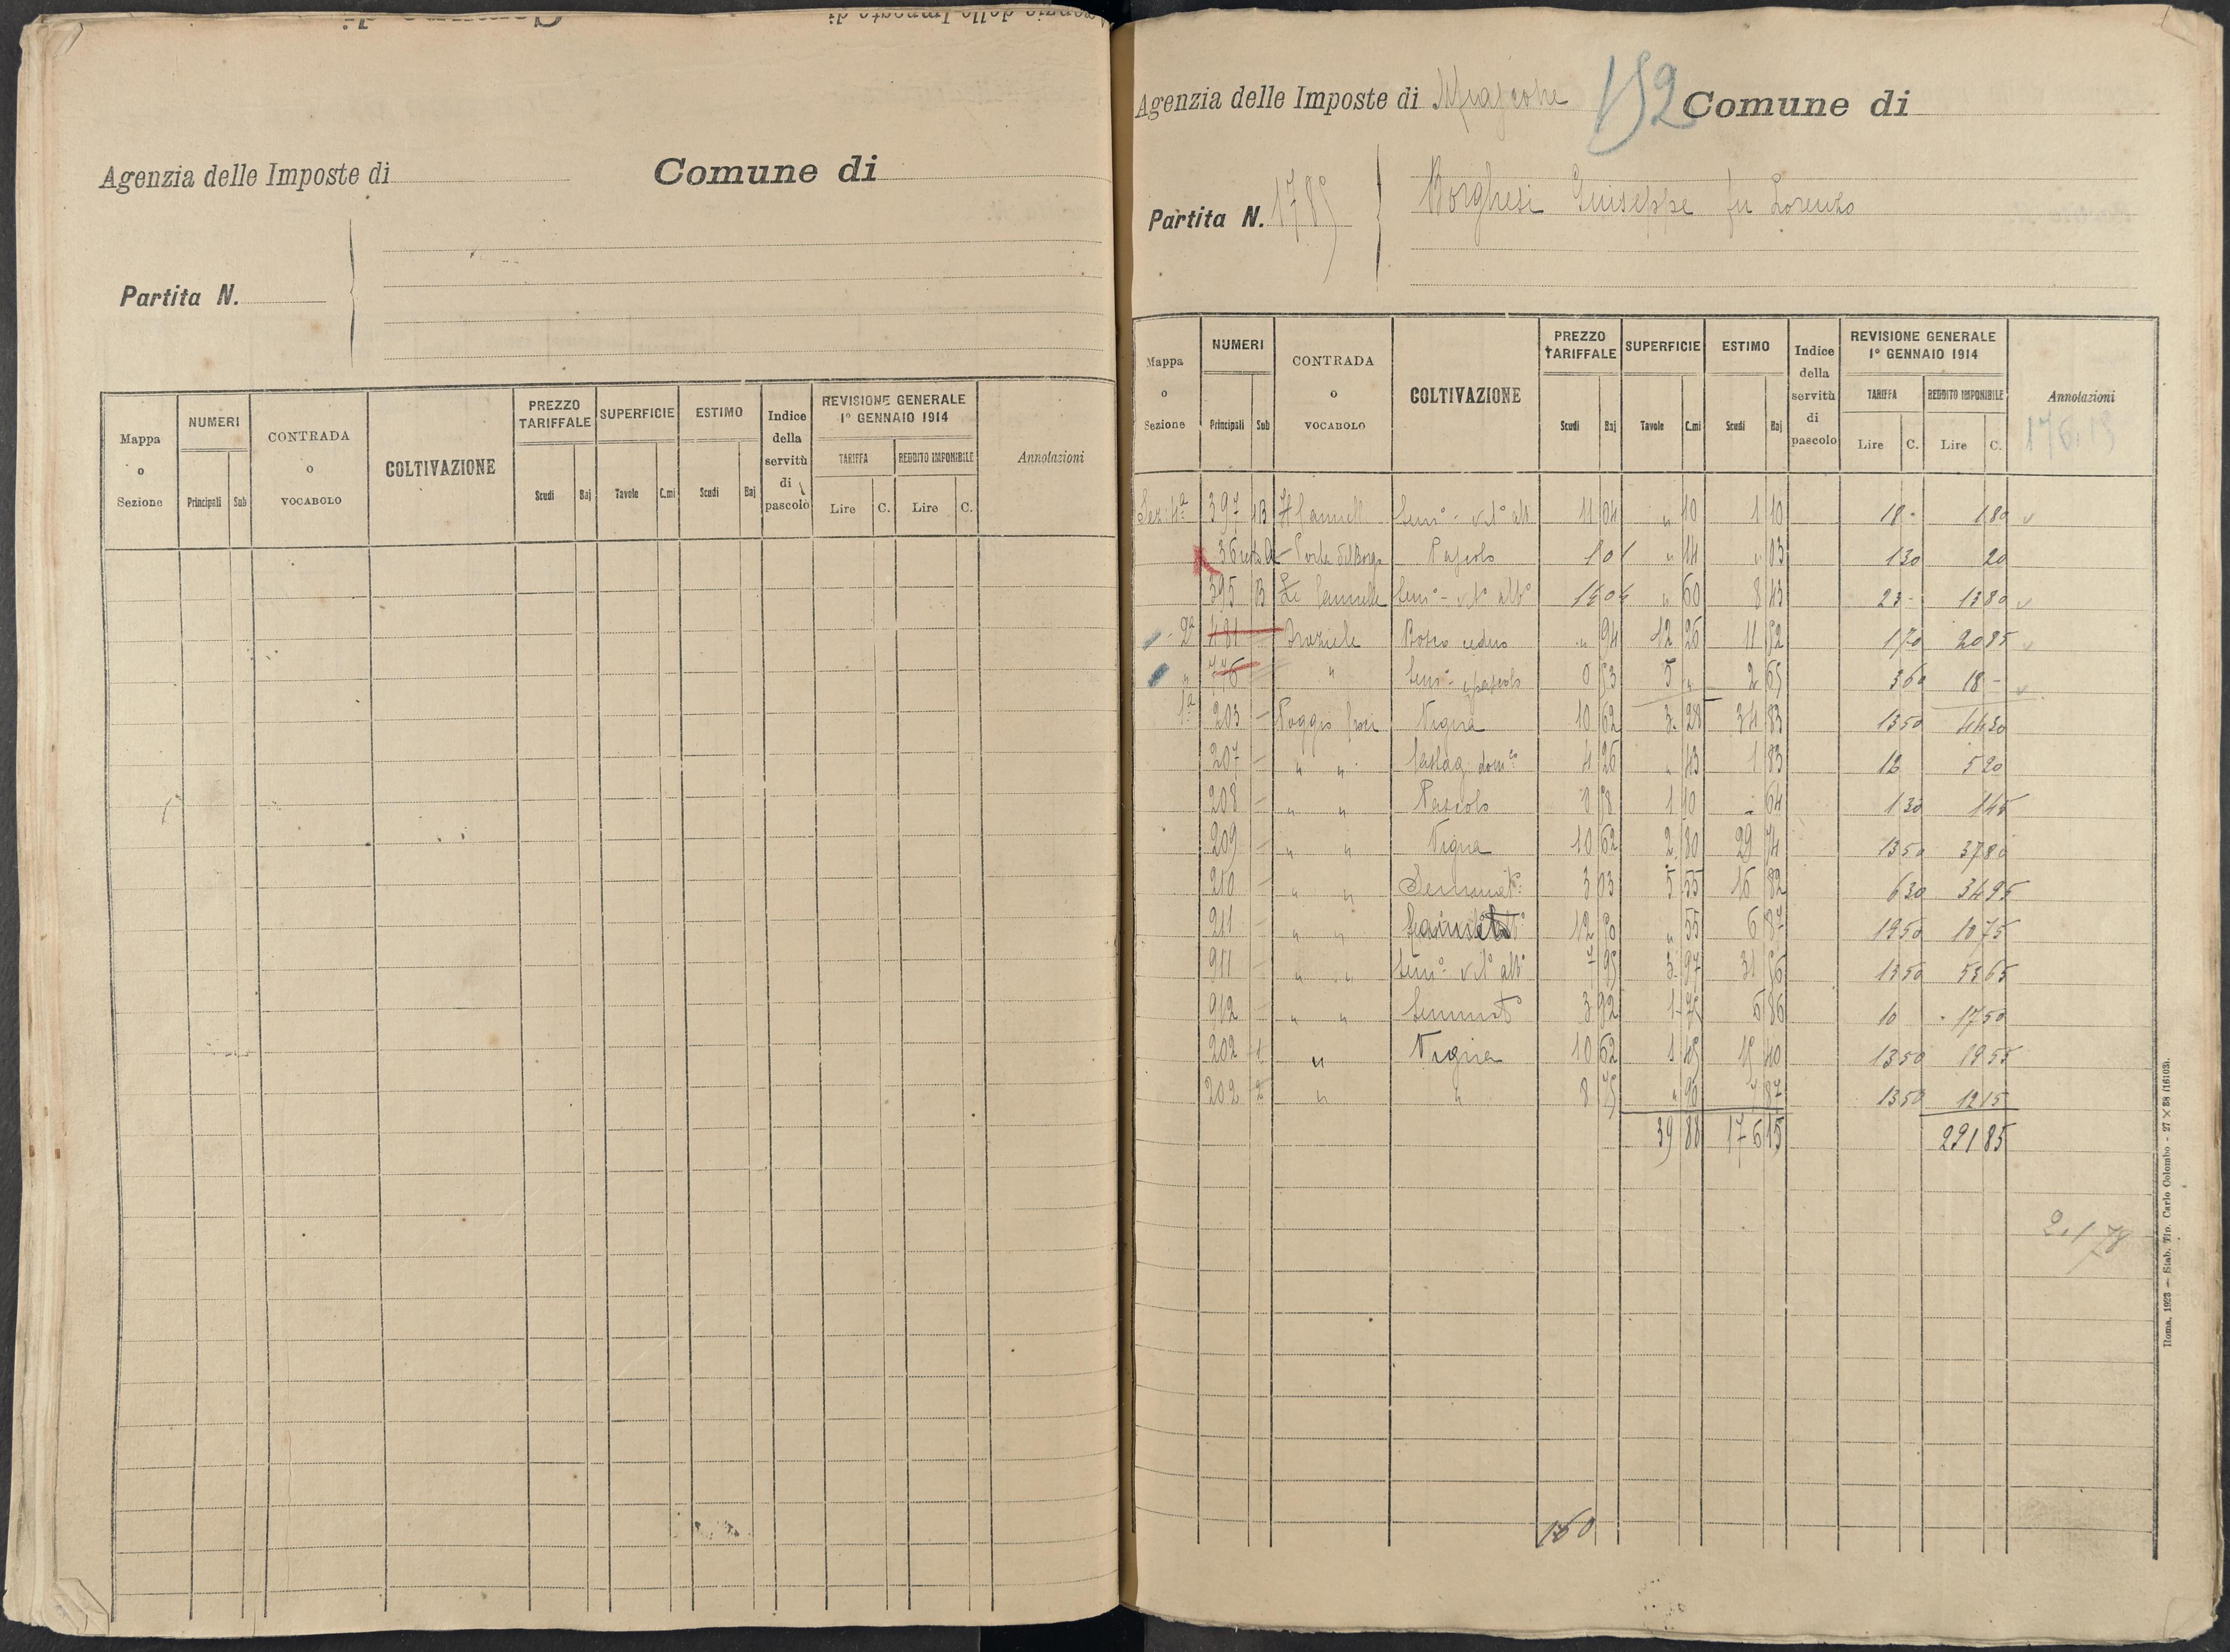 Agenzia delle Imposte di
Comune di
Partita N.
Mappa o Sezione
NUMERI
Principali Sub
CONTRADA o VOCABOLO
COLTIVAZIONE
PREZZO TARIFFALE
Scudi Baj
SUPERFICIE
Tavole C.mi
ESTIMO
Scudi Baj
Indice della servitù di pascolo
REVISIONE GENERALE
1° GENNAIO 1914
TARIFFA REDDITO IMPONIBILE
Lire C. Lire C.
Annotazioni
Agenzia delle Imposte di 192 Comune di
Partita N. 1789 Borghesi Giuseppe fu Lorenzo
Mappa o Sezione
NUMERI
Principali Sub
CONTRADA o VOCABOLO
COLTIVAZIONE
PREZZO TARIFFALE
Scudi Baj
SUPERFICIE
Tavole C.mi
ESTIMO
Scudi Baj
Indice della servitù di pascolo
REVISIONE GENERALE
1° GENNAIO 1914
TARIFFA REDDITO IMPONIBILE
Lire C. Lire C.
Annotazioni
176.15
Sez. 4ª 397 B 11 04 " 10 1 10 18 - 1 80
Pascolo 1 01 " 14 " 03 1 30 20
395 B Le " 60 8 43 23 - 13 80
2ª 481 Bosco ceduo " 94 12 26 11 52 1 70 20 85
" 776 " 0 53 5 " 2 65 3 60 18 -
1ª 203 - Poggio Vigna 10 62 3 28 34 83 13 50 44 30
207 - " " Castag. dom.co 4 26 " 43 1 83 12 5 20
208 - " " Pascolo 0 58 1 10 - 64 1 30 1 45
209 - " " Vigna 10 62 2 80 29 74 13 50 37 80
210 - " " Seminat.° 3 03 5 55 16 82 6 30 34 95
211 - " " 12 50 " 55 6 87 19 50 10 75
911 " " Sem.° vit.° alb.° 7 95 3 97 31 56 13 50 53 65
912 - " " Seminat.° 3 92 1 75 6 86 10 17 50
202 1 " Vigna 10 62 1 45 15 40 13 50 19 55
202 2 " " 8 75 " 90 7 87 13 50 12 15
39 88 176 15 291 85
2.178
160
Roma, 1923 — Stab. Tip. Carlo Colombo - 27 × 38 (16103).